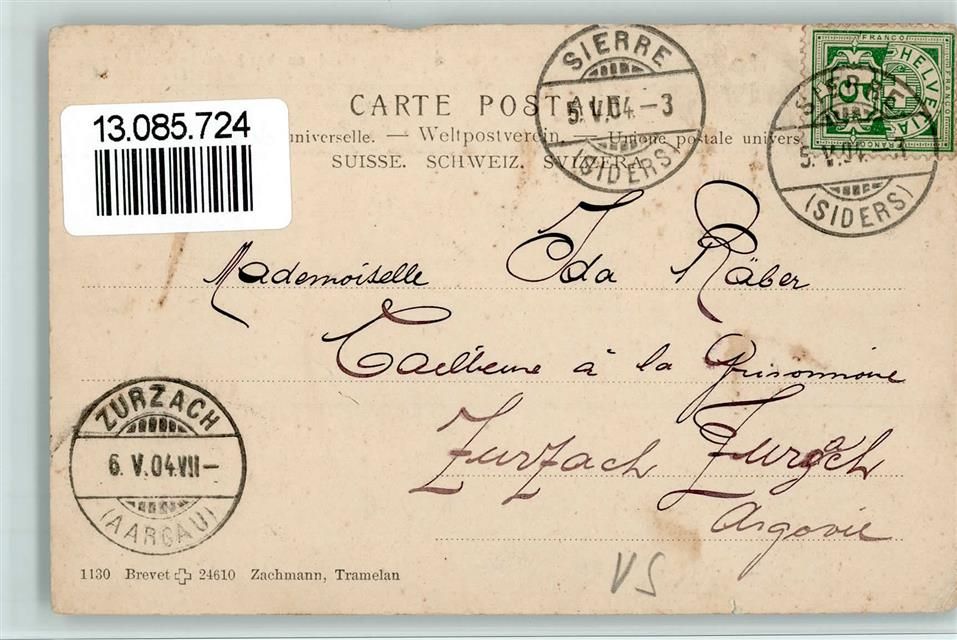 13.085.724
CARTE POSTALE
universelle. — Weltpostverein — Unione postale univers
SUISSE. SCHWEIZ. SVIZZERA
SIERRE
5.V.04.-3
(SIDERS)
FRANCO
HELVETIA
5
SIERRE
5.V.04.
(SIDERS)
Mademoiselle Ida Räber
Tailleuse à la
Zurzach Zurzach
Argovie
ZURZACH
6.V.04.VII-
(AARGAU)
1130 Brevet 24610 Zachmann, Tramelan
VS